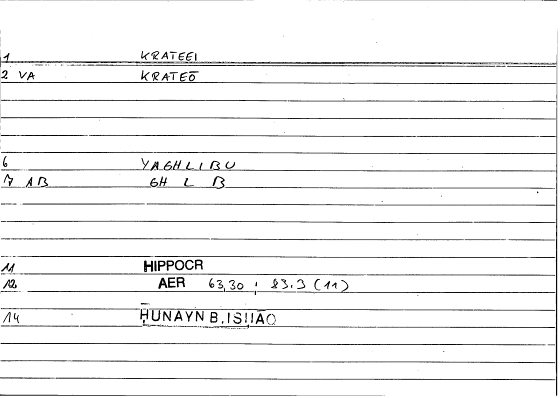 1 KRATEEI
2 VA KRATEŌ
6 YAGHLIBU
7 AB GH L B
11 HIPPOCR
12 AER 63,30 ; 83.3 (11)
14 ḤUNAYN B. ISḤĀQ